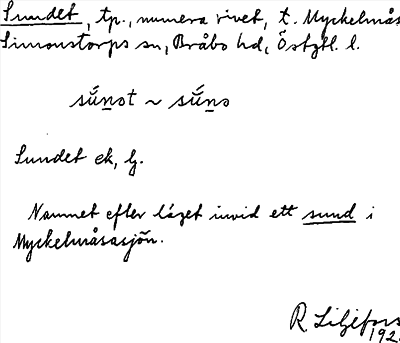 Sundet, tp., numera rivet, t. Myckelmås
Simonstorps sn, Bråbo hd, Östgtl. l.
sų́not ~ sų́no
Sundet ek, lj.
Namnet efter läget invid ett sund i
Myckelmåsasjön.
R. Liljefors
192